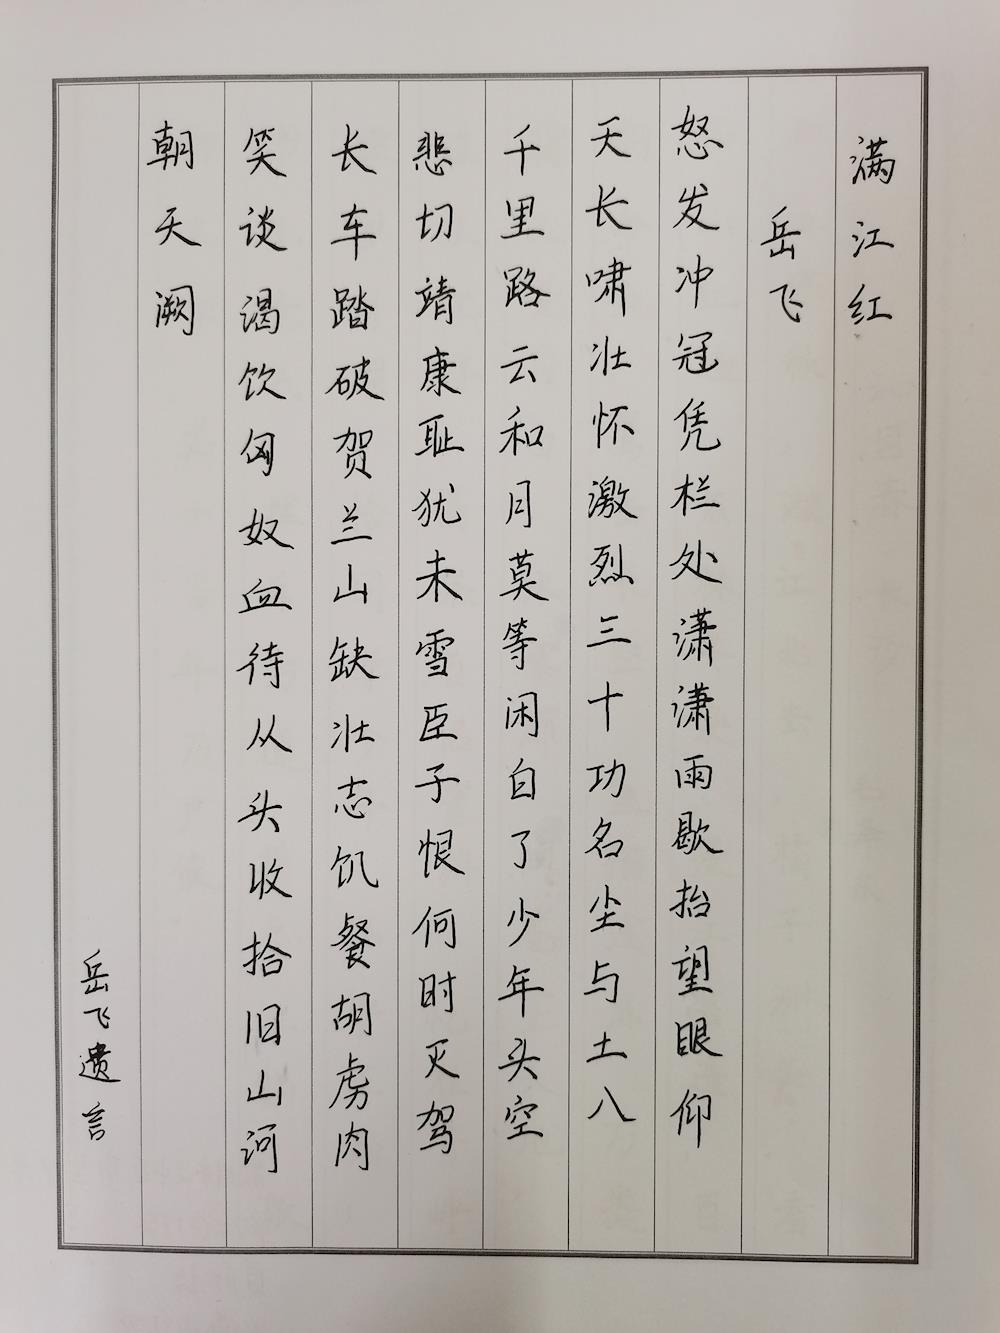 满江红
岳飞
怒发冲冠凭栏处潇潇雨歇抬望眼仰
天长啸壮怀激烈三十功名尘与土八
千里路云和月莫等闲白了少年头空
悲切靖康耻犹未雪臣子恨何时灭驾
长车踏破贺兰山缺壮志饥餐胡虏肉
笑谈渴饮匈奴血待从头收拾旧山河
朝天阙
岳飞遗言